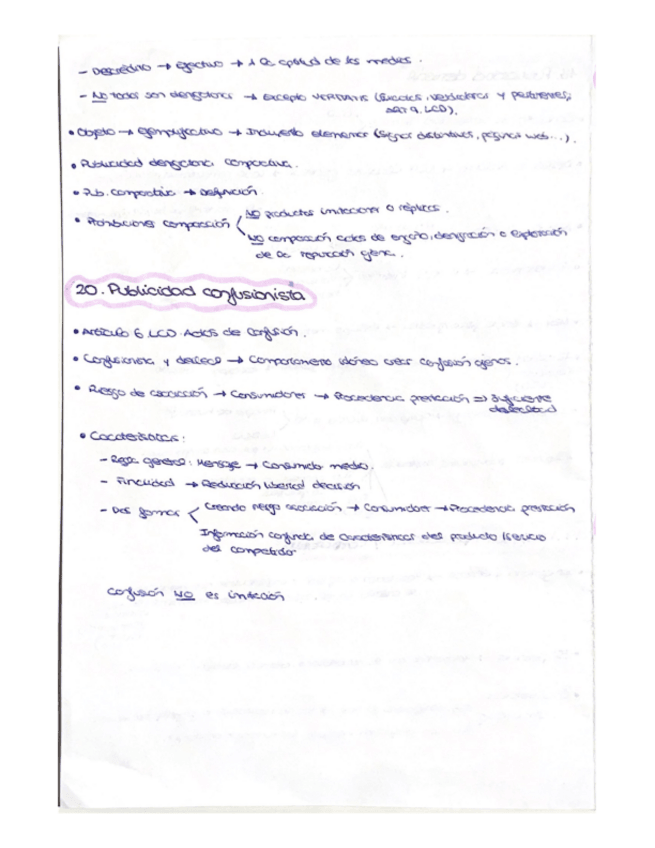 - Descrédito → efectivo → la aptitud de los medios.
- NO todas son denigratorias → Excepto VERITATIS (Exactas, verdaderas y pertinentes,
art. 9, LCD).
• Objeto → ejemplificativo → Incluyendo elementos (signos distintivos, páginas web...).
• Publicidad denigratoria comparativa.
• Pub. comparativa → Definición.
• Prohibiciones comparación < NO productos imitaciones o réplicas.
NO comparación actos de engaño, denigración o explotación
de la reputación ajena.
20. Publicidad confusionista
• Artículo 6 LCD. Actos de Confusión.
• Confusionista y desleal → Comportamiento idóneo crear confusión ajenos.
• Riesgo de asociación → Consumidores → Procedencia prestación => Suficiente
deslealtad
• Características:
- Regla general: Mensaje → Consumidor medio.
- Finalidad → Reducción libertad decisión
- Dos formas < Creando riesgo asociación → Consumidor → Procedencia prestación
Información confunda de características del producto/servicio
del competidor
Confusión NO es imitación